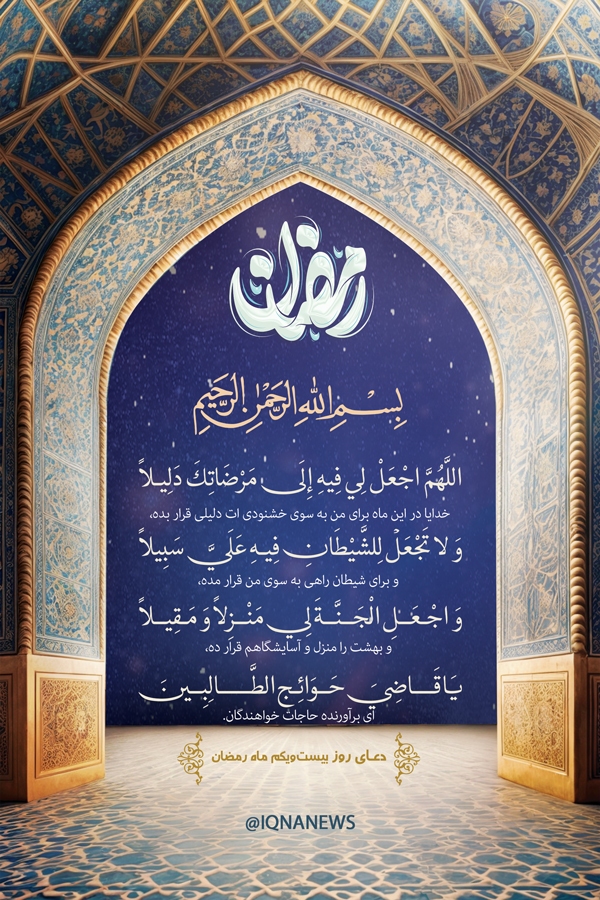 رمضان
بِسْمِ اللهِ الرَّحْمٰنِ الرَّحِيمِ
اللَّهُمَّ اجْعَلْ لِي فِيهِ إِلَى مَرْضَاتِكَ دَلِيلاً
خدایا در این ماه برای من به سوی خشنودی ات دلیلی قرار بده،
وَ لا تَجْعَلْ لِلشَّيْطَانِ فِيهِ عَلَيَّ سَبِيلاً
و برای شیطان راهی به سوی من قرار مده،
وَ اجْعَلِ الْجَنَّةَ لِي مَنْزِلاً وَ مَقِيلاً
و بهشت را منزل و آسایشگاهم قرار ده،
يَا قَاضِيَ حَوَائِجِ الطَّالِبِينَ
ای برآورنده حاجات خواهندگان.
دعای روز بیست‌ویکم ماه رمضان
@IQNANEWS